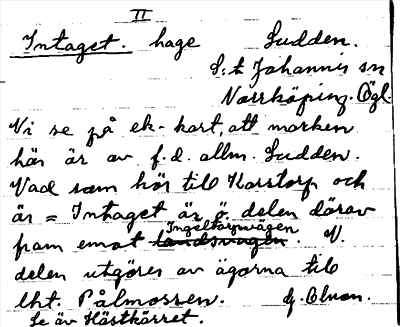 II
Intaget. hage Sudden.
S:t Johannis sn
Norrköping. Ögl.
Vi se på ek-kart, att marken
här är av f.d. allm. Sudden.
Vad som hör till Karstorp och
är = Intaget är ö. delen därav
Ingelstavägen
fram emot landsvägen. V.
delen utgöres av ägorna till
lht. Pålmossen.
Se äv Hästkärret.